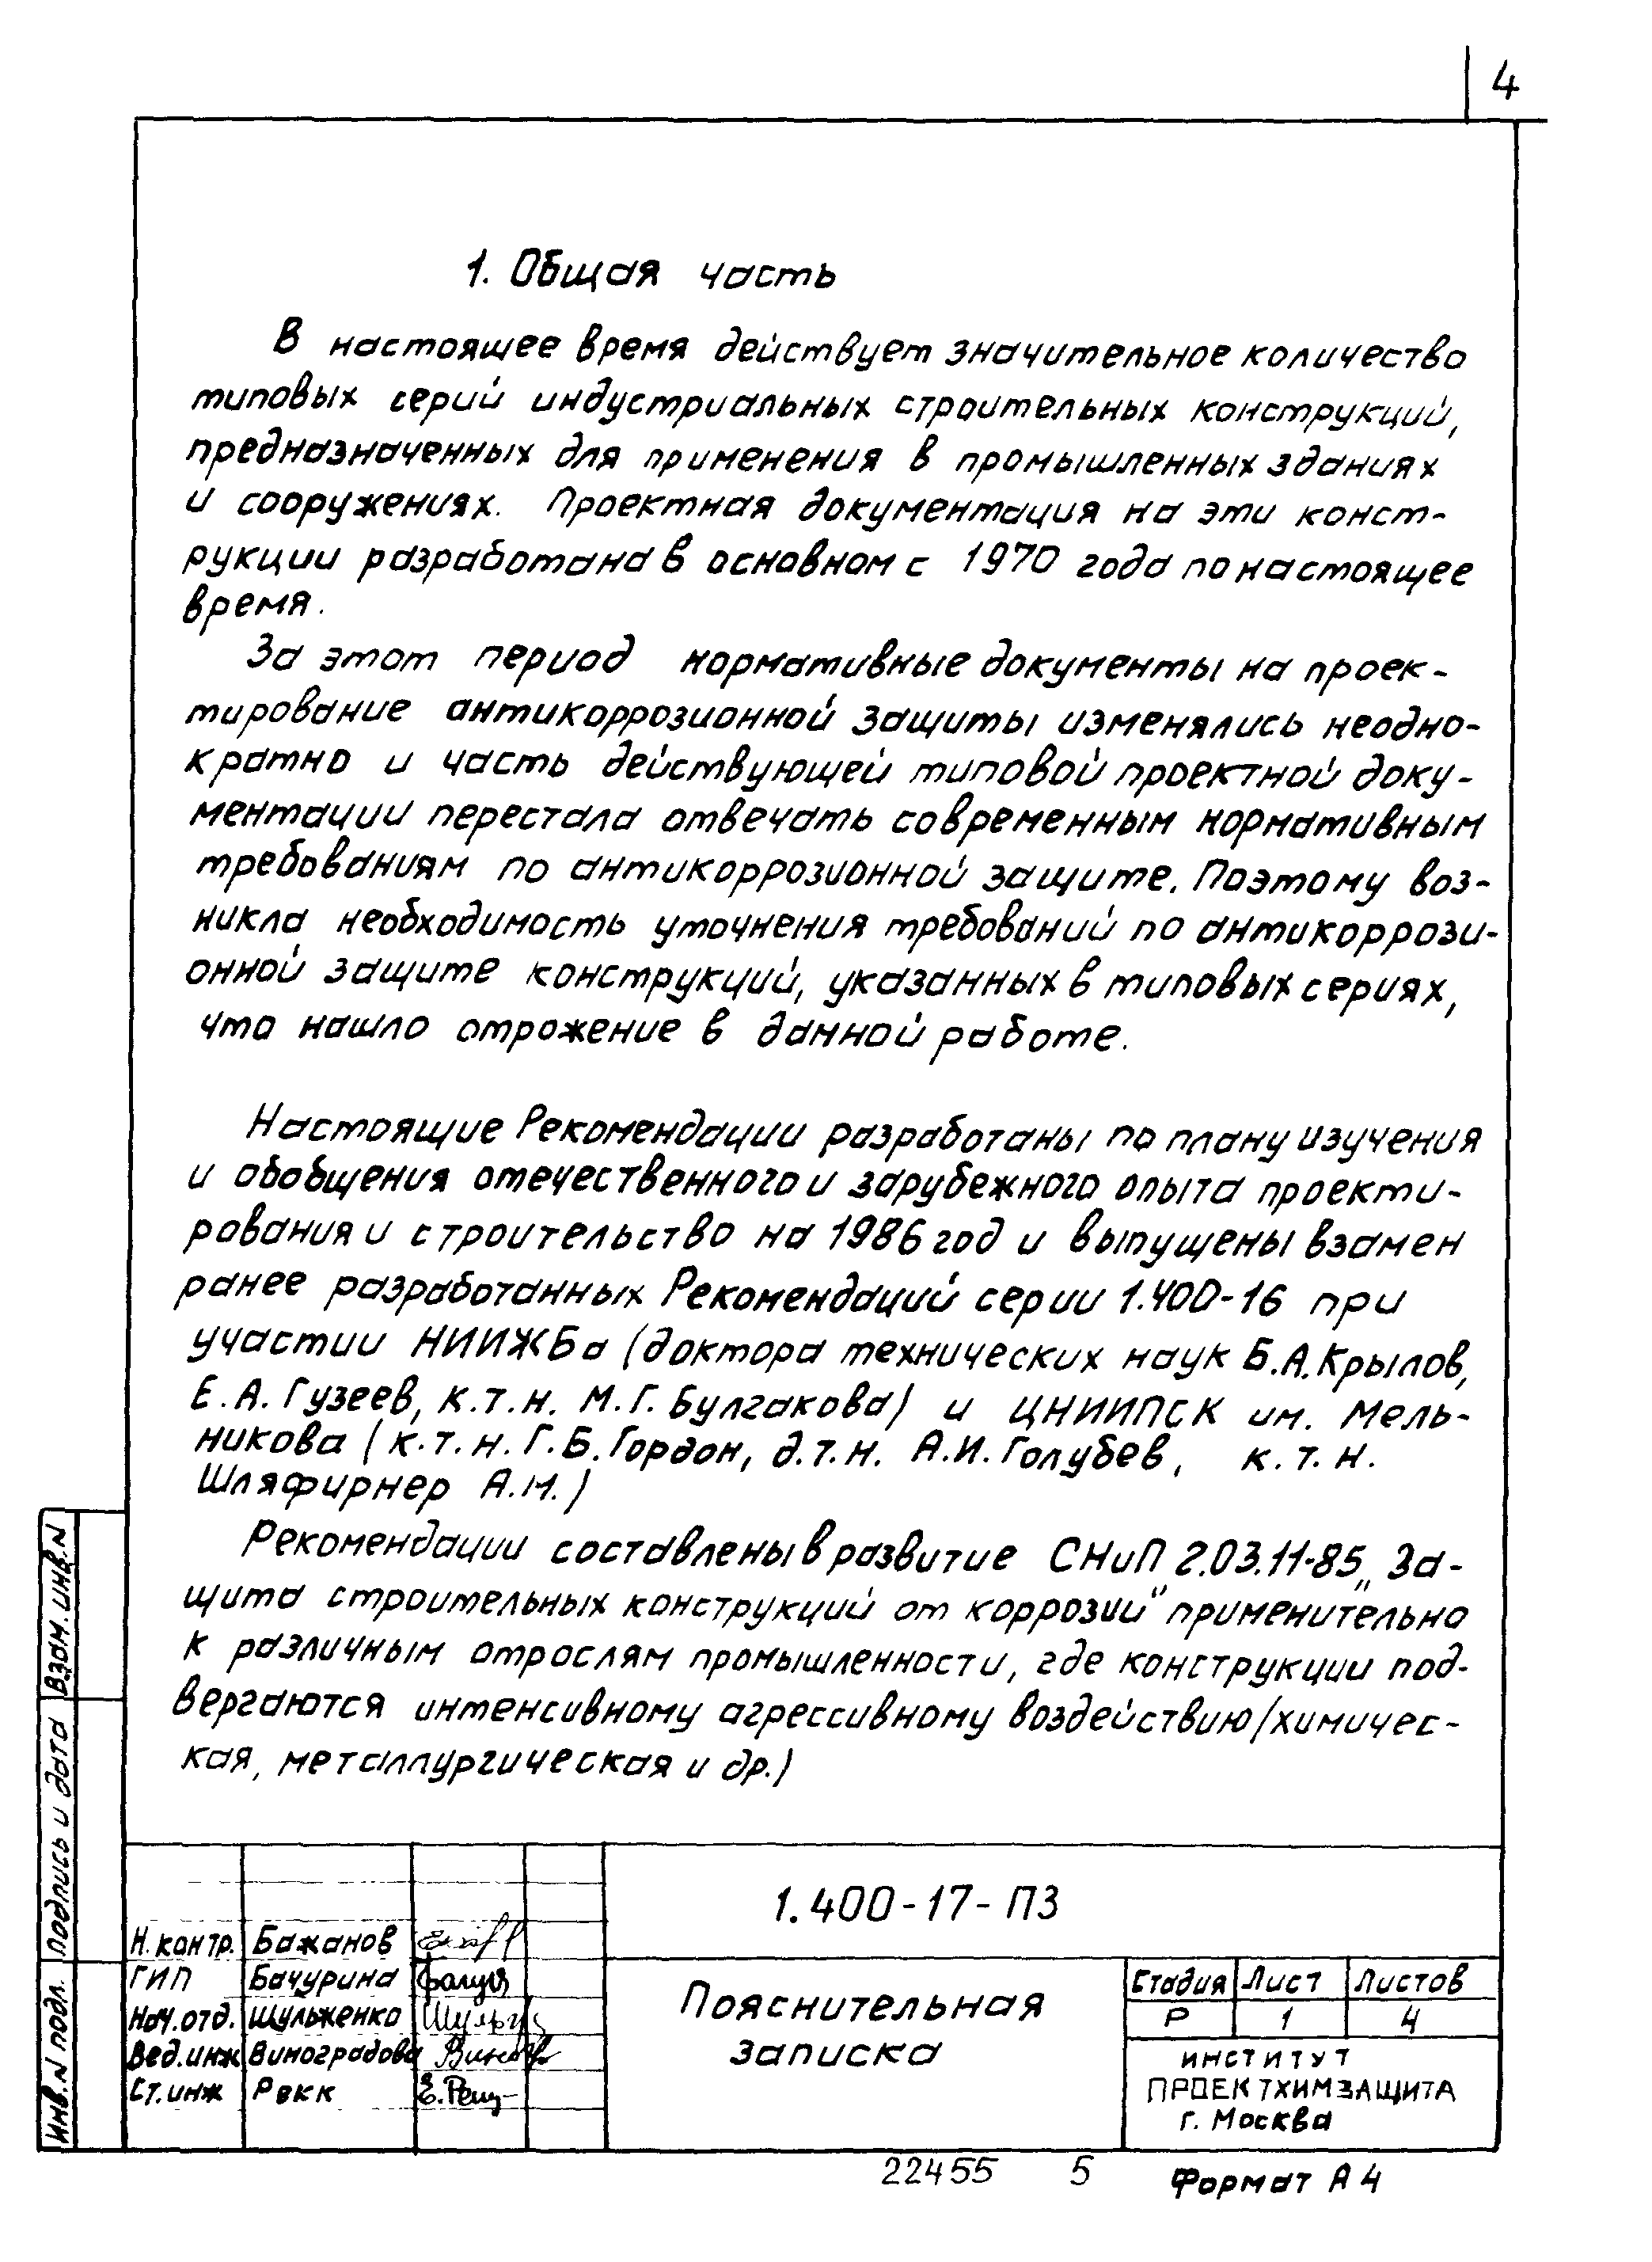 4
1. Общая часть
В настоящее время действует значительное количество
типовых серий индустриальных строительных конструкций,
предназначенных для применения в промышленных зданиях
и сооружениях. Проектная документация на эти конст-
рукции разработана в основном с 1970 года по настоящее
время.
За этот период нормативные документы на проек-
тирование антикоррозионной защиты изменялись неодно-
кратно и часть действующей типовой проектной доку-
ментации перестала отвечать современным нормативным
требованиям по антикоррозионной защите. Поэтому воз-
никла необходимость уточнения требований по антикоррози-
онной защите конструкций, указанных в типовых сериях,
что нашло отражение в данной работе.
Настоящие Рекомендации разработаны по плану изучения
и обобщения отечественного и зарубежного опыта проекти-
рования и строительство на 1986 год и выпущены взамен
ранее разработанных Рекомендаций серии 1.400-16 при
участии НИИЖБа (доктора технических наук Б.А. Крылов,
Е.А. Гузеев, к.т.н. М.Г. Булгакова) и ЦНИИПСК им. Мель-
никова (к.т.н. Г.Б. Гордон, д.т.н. А.И. Голубев, к.т.н.
Шляфирнер А.М.)
Рекомендации составлены в развитие СНиП 2.03.11-85 „За-
щита строительных конструкций от коррозии" применительно
к различным отраслям промышленности, где конструкции под-
вергаются интенсивному агрессивному воздействию /химичес-
кая, металлургическая и др.)
Взам. инв. N
Подпись и дата
Инв. N подл.
1.400-17-ПЗ
Н. контр. Бажанов
ГИП Бачурина
Нач. отд. Шульженко
Вед. инж Виноградова
Ст. инж Рекк
Пояснительная
записка
Стадия Лист Листов
Р 1 4
ИНСТИТУТ
ПРОЕКТХИМЗАЩИТА
г. Москва
22455 5 Формат А4